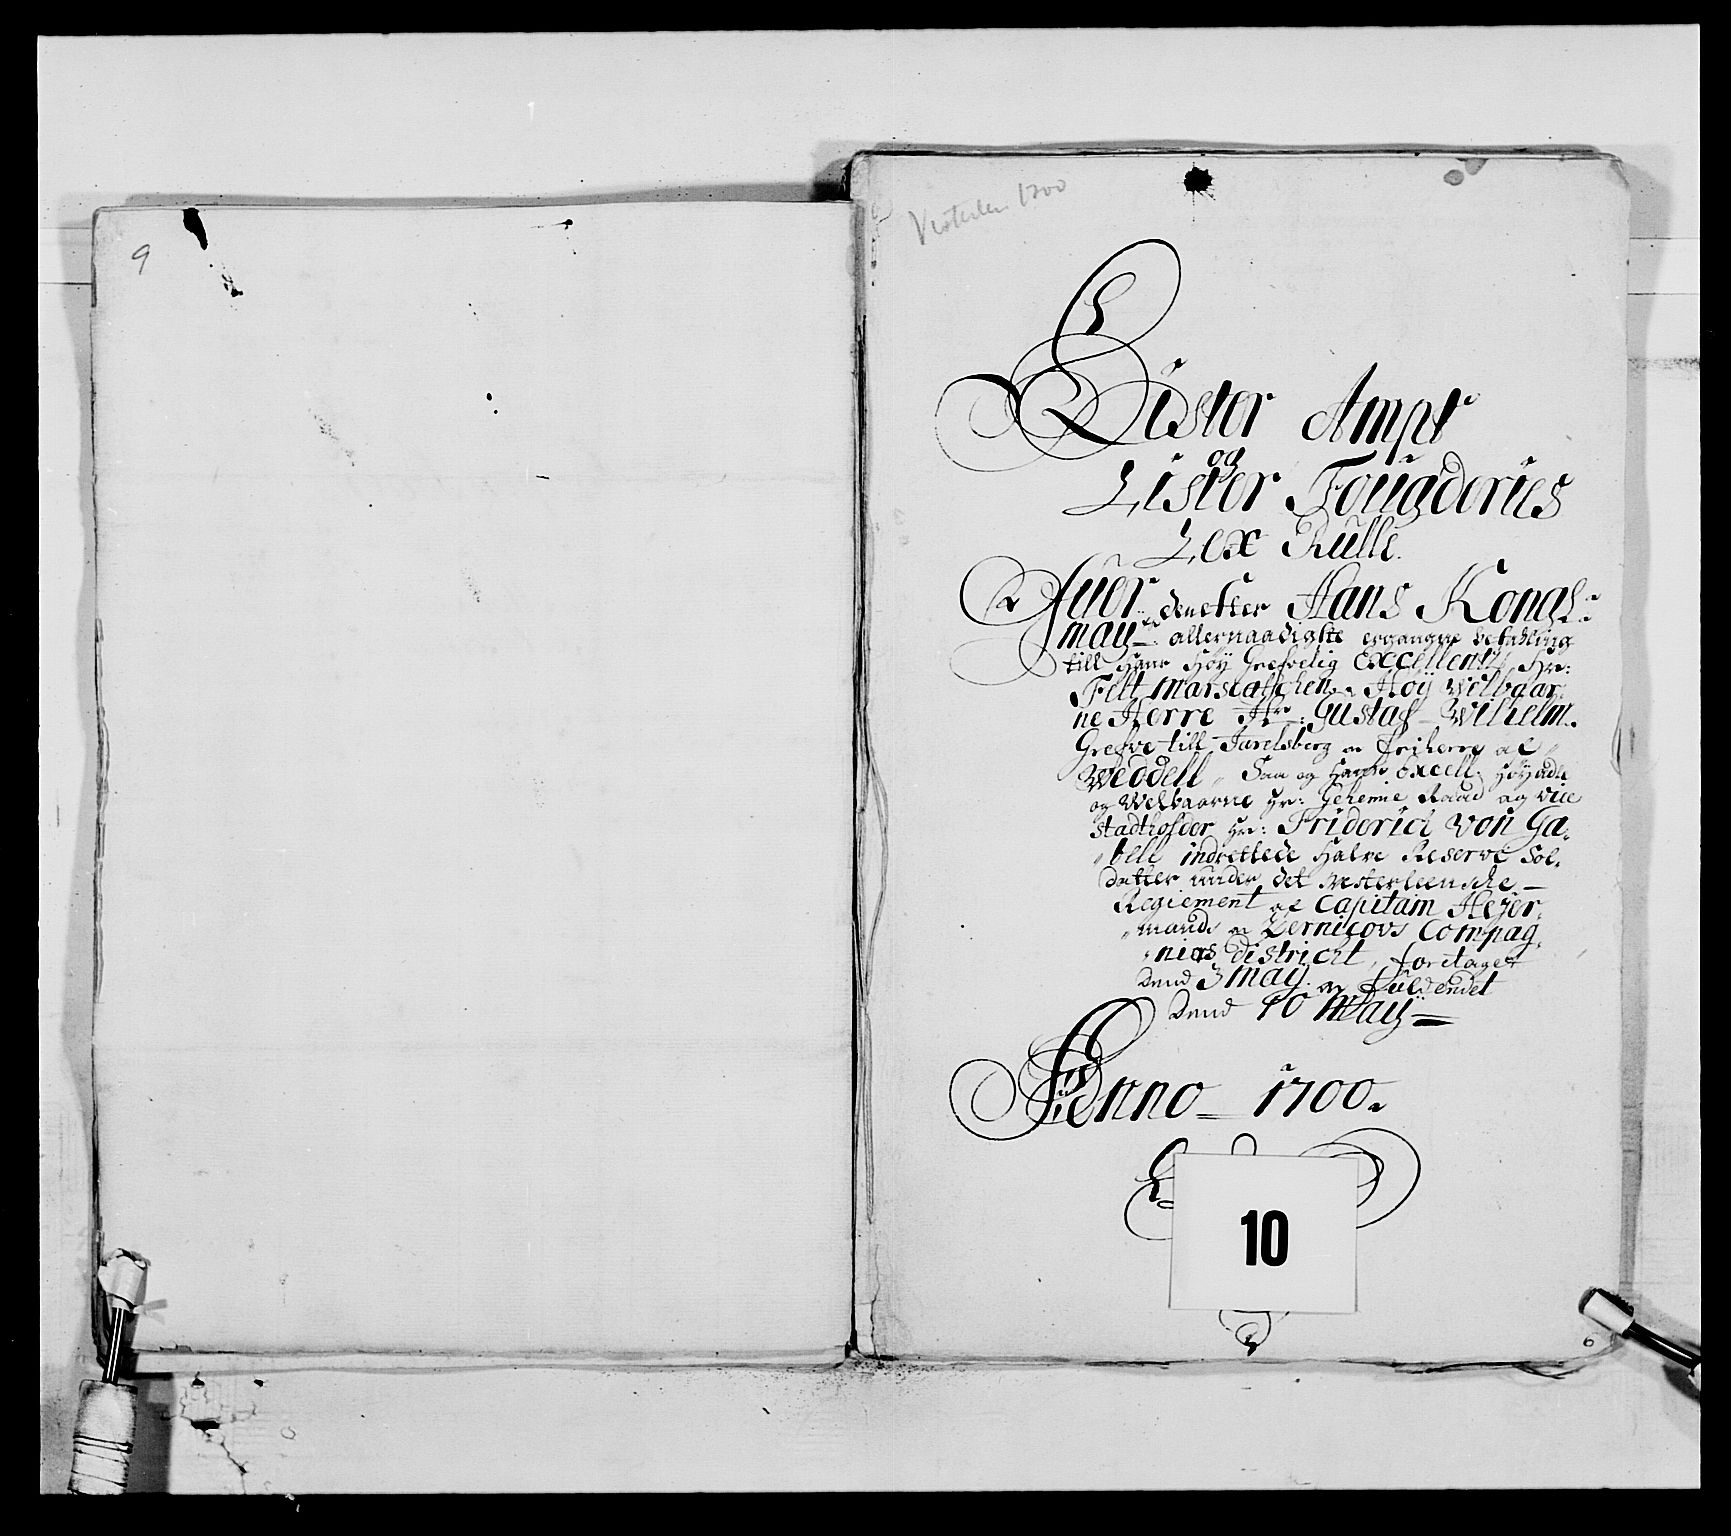 9
Vesterlen 1700
Lister Ampt
og
Lister Fougderies
Lex Rulle.
Øfuer den efter Hans Kongl:
may:tz allernaadigste ergangne befahling
till Hans Høy Grefvelig Excellentz Hr:
Felt Marscalschen Høy Velbaar,
ne Herre Hr: Gustaf Wilhelm.
Grefve till Jarelsberg friherre af
Weddell, Saa og Hans Excell: Høyædle
og Velbaarne Hr: Geheime Raad og Vice
Stadtholder Hr: Friderich von Ga,
bell indrettede Halve Reserve Sol,
datter under det Vesterleenske
Regiement af Capitain Hejer,
mands Zernicovs Compag,
nies District, foretaget
Dend 3 may. fuldendet
Dend 10 May
Anno 1700.
10
6